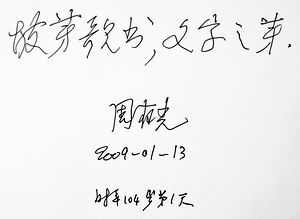 坡芽歌书,文字之芽.
周有光
2009-01-13
时年104岁第1天